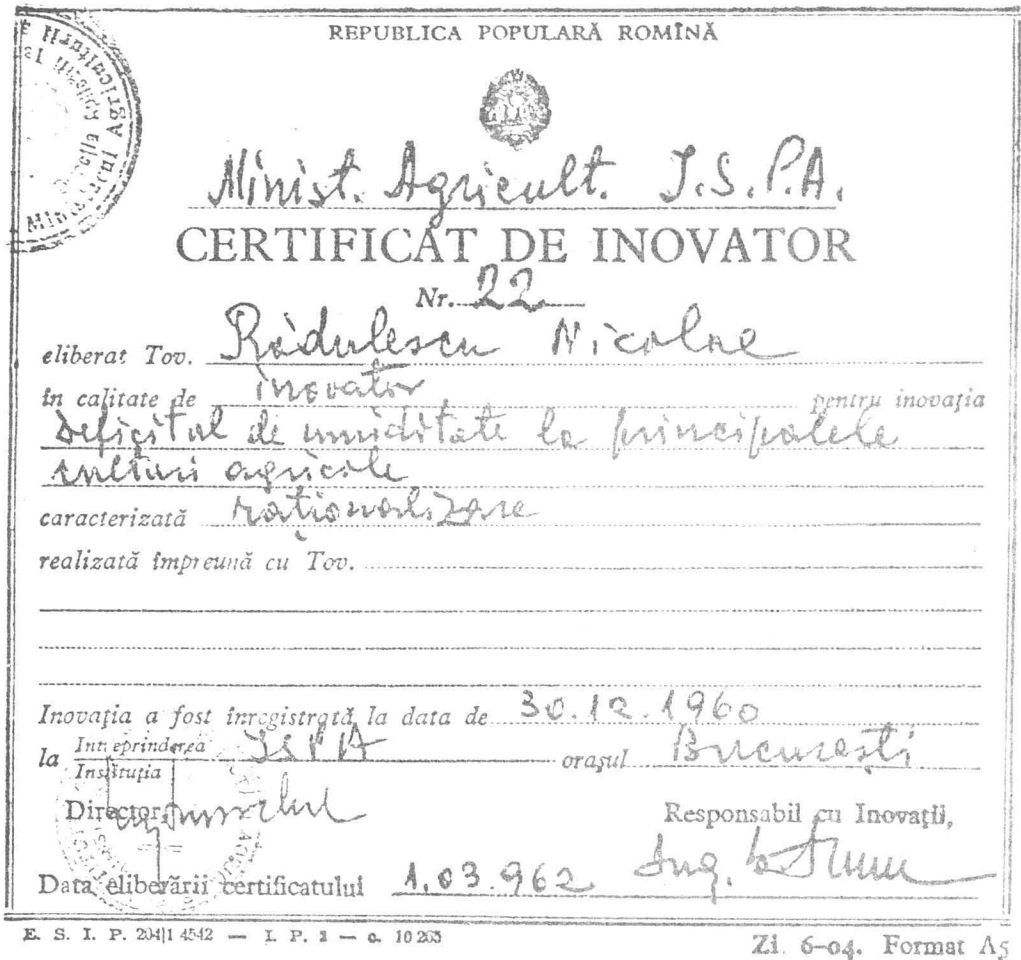 REPUBLICA POPULARĂ ROMÎNĂ
Minist. Agricult. I.S.P.A.
CERTIFICAT DE INOVATOR
Nr. 22
eliberat Tov. Rădulescu Nicolae
în calitate de inovator pentru inovaţia
Deficitul de umiditate la principalele
culturi agricole
caracterizată raționalizare
realizată împreună cu Tov.
Inovaţia a fost înregistrată la data de 30.12.1960
la Intreprinderea ISPA oraşul Bucureşti
Instituţia
Director, Responsabil cu Inovaţii,
Ing.
Data eliberării certificatului 1.03.962
E. S. I. P. 204|1 4542 — I. P. 2 — c. 10 265
Zi. 6-04. Format A5